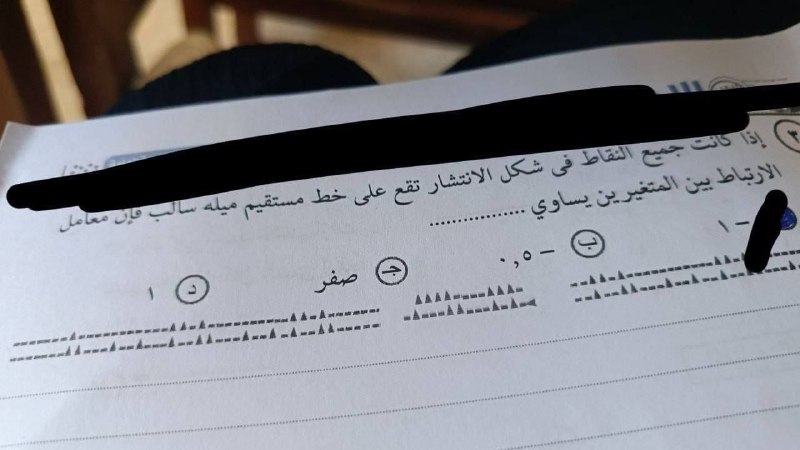 ٣ إذا كانت جميع النقاط في شكل الانتشار تقع على خط مستقيم ميله سالب فإن معامل
الارتباط بين المتغيرين يساوي ................
− ١ ب − ٠,٥ جـ صفر د ١